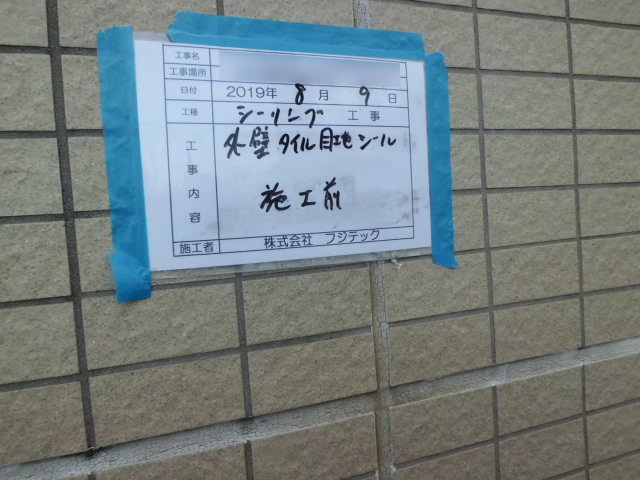 工事名
工事場所
日付 2019年 8月 9日
工種 シーリング 工事
工事内容
外壁タイル目地シール
施工前
施工者 株式会社 フジテック